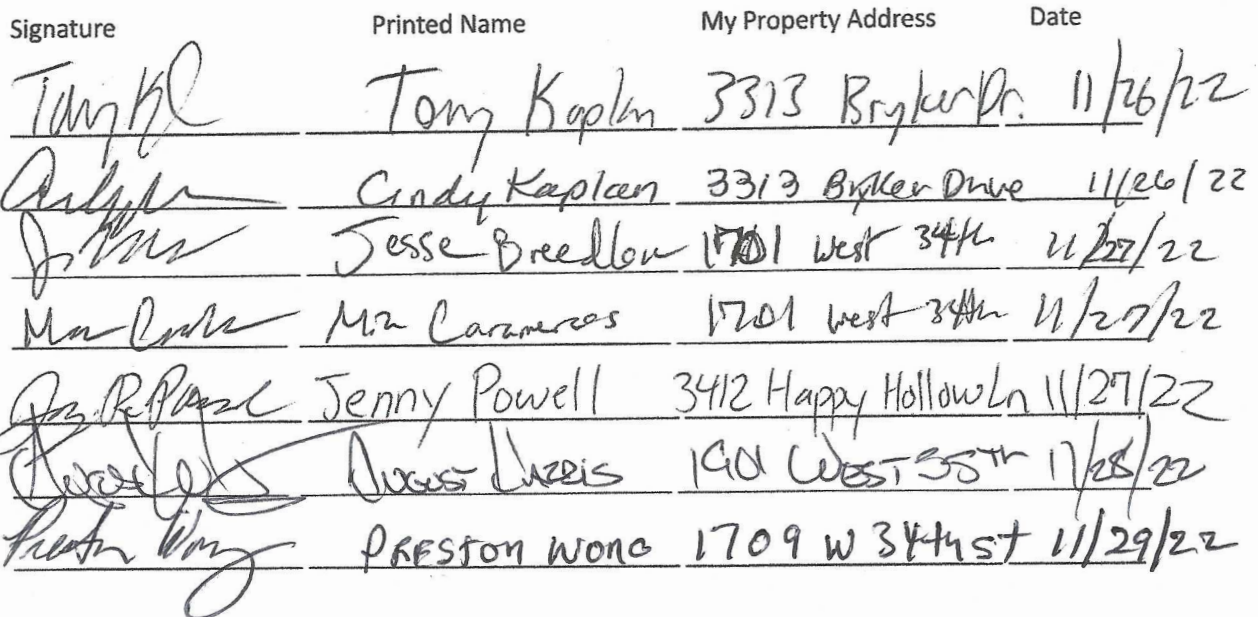 Signature Printed Name My Property Address Date
Tony Kaplan 3313 Bryker Dr. 11/26/22
Cindy Kaplan 3313 Bryker Drive 11/26/22
Jesse Breedlove 1701 West 34th 11/27/22
1701 West 34th 11/27/22
Jenny Powell 3412 Happy Hollow Ln 11/27/22
August Harris 1901 WEST 35TH 11/28/22
Preston Wong PRESTON WONG 1709 W 34th st 11/29/22